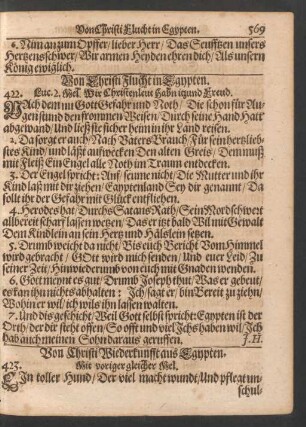 Von Christi Flucht in Egypten. 569
6. Nim an zum Opffer/lieber Herr/Das Seufftzen unsers
Hertzens schwer/Wir armen Heyden ehren dich/Als unsern
König ewiglich.
Von Christi Flucht in Egypten.
422. Luc. 2. Mel. Wir Christenleut habn itzund Freud.
Nach dem nu Gott Gefahr und Noth/Die schon für Au-
gen stund den frommen Weisen/Durch seine Hand Hatt
abgewand/Und ließ sie sicher heim in ihr Land reisen.
2. Da sorget er auch Nach Vaters Brauch/Für sein hertzlieb-
stes Kind/und läßt aufwecken Den alten Greis/Dem muß
mit Fleiß Ein Engel alle Noth im Traum entdecken.
3. Der Engel spricht: Auf/seume nicht/Die Mutter und ihr
Kind laß mit dir ziehen/Egyptenland Sey dir genannt/Da
solt ihr der Gefahr mit Glück entfliehen.
4. Herodes hat/Durchs Satans Rath/Sein Mordschwert
allbereit scharf lassen wetzen/Das er itz bald Wil mit Gewalt
Dem Kindlein an sein Hertz und Hälslein setzen.
5. Drumb weicht da nicht/Bis euch Bericht Vom Himmel
wird gebracht/GOtt wird mich senden/Und euer Leid/Zu
seiner Zeit/Hinwiederumb von euch mit Gnaden wenden.
6. Gott meynt es gut/Drumb Joseph thut/Was er gebeut/
es kan ihn nichts abhalten: Ich/sagt er/bin Bereit zu ziehn/
Wohin er wil/ich wils ihn lassen walten.
7. Und dis geschicht/Weil Gott selbst spricht: Egypten ist der
Orth/der dir steht offen/So offt und viel Ichs haben wil/Ich
hab auch meinen Sohn daraus geruffen. J. H.
Von Christi Wiederkunfft aus Egypten.
423. Mit voriger gleicher Mel.
Ein toller Hund/Der viel macht wundt/Und pflegt un-
schul-